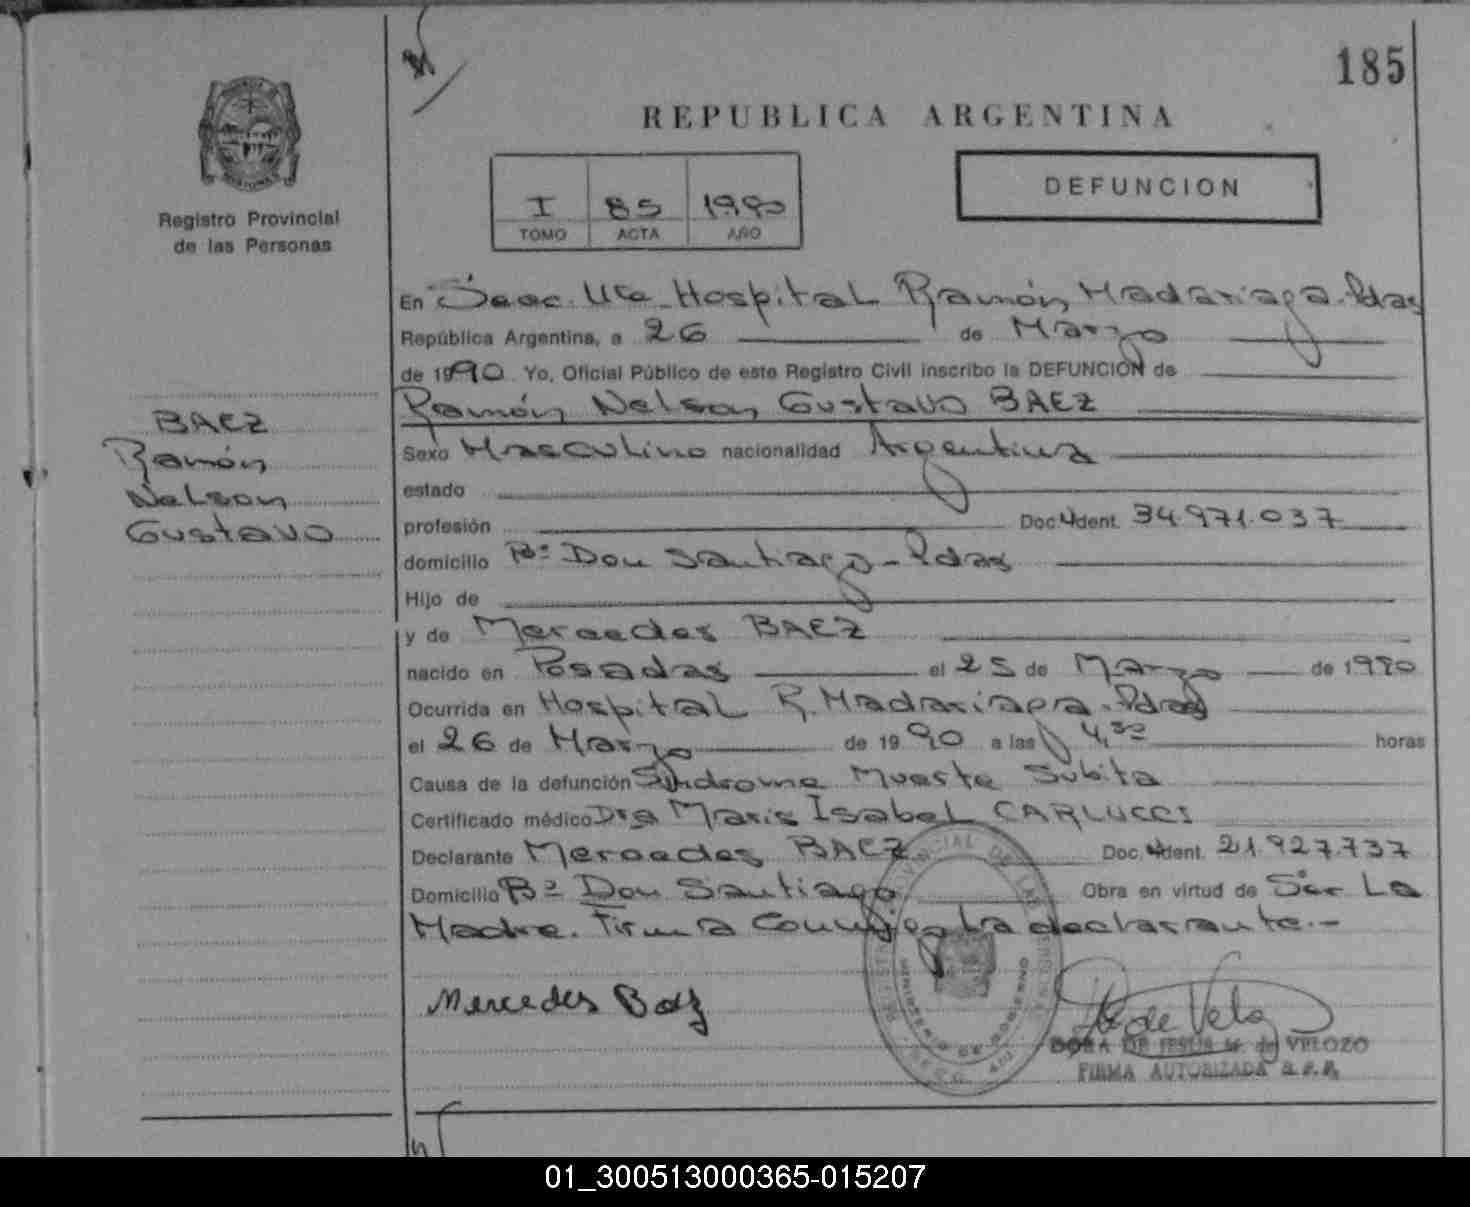 185
REPUBLICA ARGENTINA
DEFUNCION
I 85 1990
TOMO ACTA AÑO
Registro Provincial
de las Personas
BAEZ
Ramón
Nelson
Gustavo
En Secc. Uta Hospital Ramón Madariaga. Pdas
República Argentina, a 26 de Marzo
de 1990 Yo, Oficial Público de este Registro Civil inscribo la DEFUNCION de
Ramón Nelson Gustavo BAEZ
Sexo Masculino nacionalidad Argentina
estado
profesión Doc. Ident. 34.971.037
domicilio Bº Don Santiago - Pdas
Hijo de
y de Mercedes BAEZ
nacido en Posadas el 25 de Marzo de 1990
Ocurrida en Hospital R. Madariaga. Pdas
el 26 de Marzo de 1990 a las 4,30 horas
Causa de la defunción Síndrome Muerte Subita
Certificado médico Dra Maris Isabel CARLUCCI
Declarante Mercedes BAEZ Doc. Ident. 21.927.737
Domicilio Bº Don Santiago Obra en virtud de Ser La
Madre. Firma La declarante.-
Mercedes Baez
DORA DE JESUS M. de VELOZO
FIRMA AUTORIZADA R.P.P.
01_300513000365-015207